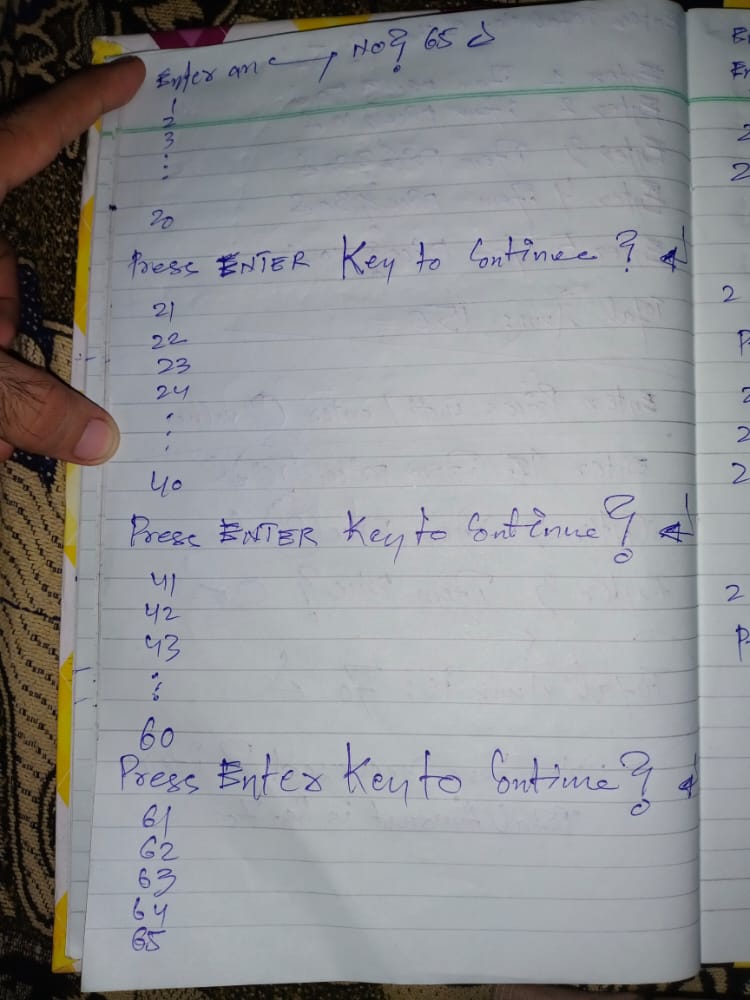 Enter any No? 65 ↵
1
2
3
⋮
20
Press ENTER Key to Continue ? ↵
21
22
23
24
⋮
40
Press ENTER Key to Continue ? ↵
41
42
43
⋮
60
Press Enter Key to Continue ? ↵
61
62
63
64
65